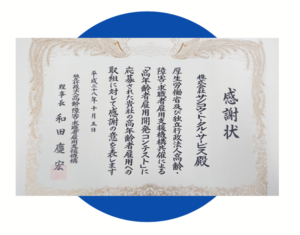 感謝状
株式会社サンコー・トータル・サービス殿
厚生労働省及び独立行政法人高齢・
障害・求職者雇用支援機構共催による
「高年齢者雇用開発コンテスト」に
応募された貴社の高年齢者雇用への
取組に対して感謝の意を表します
平成二十八年十月五日
独立行政法人高齢・障害・求職者雇用支援機構
理事長 和田慶宏